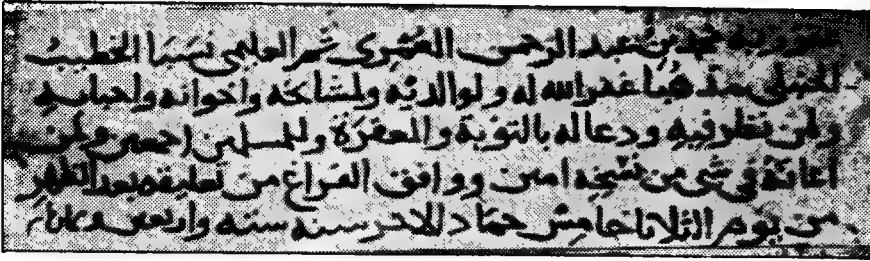 محمد بن عبد الرحمن العمري ثم العليمي نسبا الخطيب
الحنبلي مذهبا غفر الله له ولوالديه ولمشايخه واخوانه واحبابه
ولمن نظر فيه ودعا له بالتوبة والمغفرة وللمسلمين اجمعين ولمن
اعانه في شي من نسخه امين ووافق الفراغ من تعليقه بعد الظهر
من يوم الثلاثا خامس جماد الاخر سنه سنه واربعين وثمانمائة